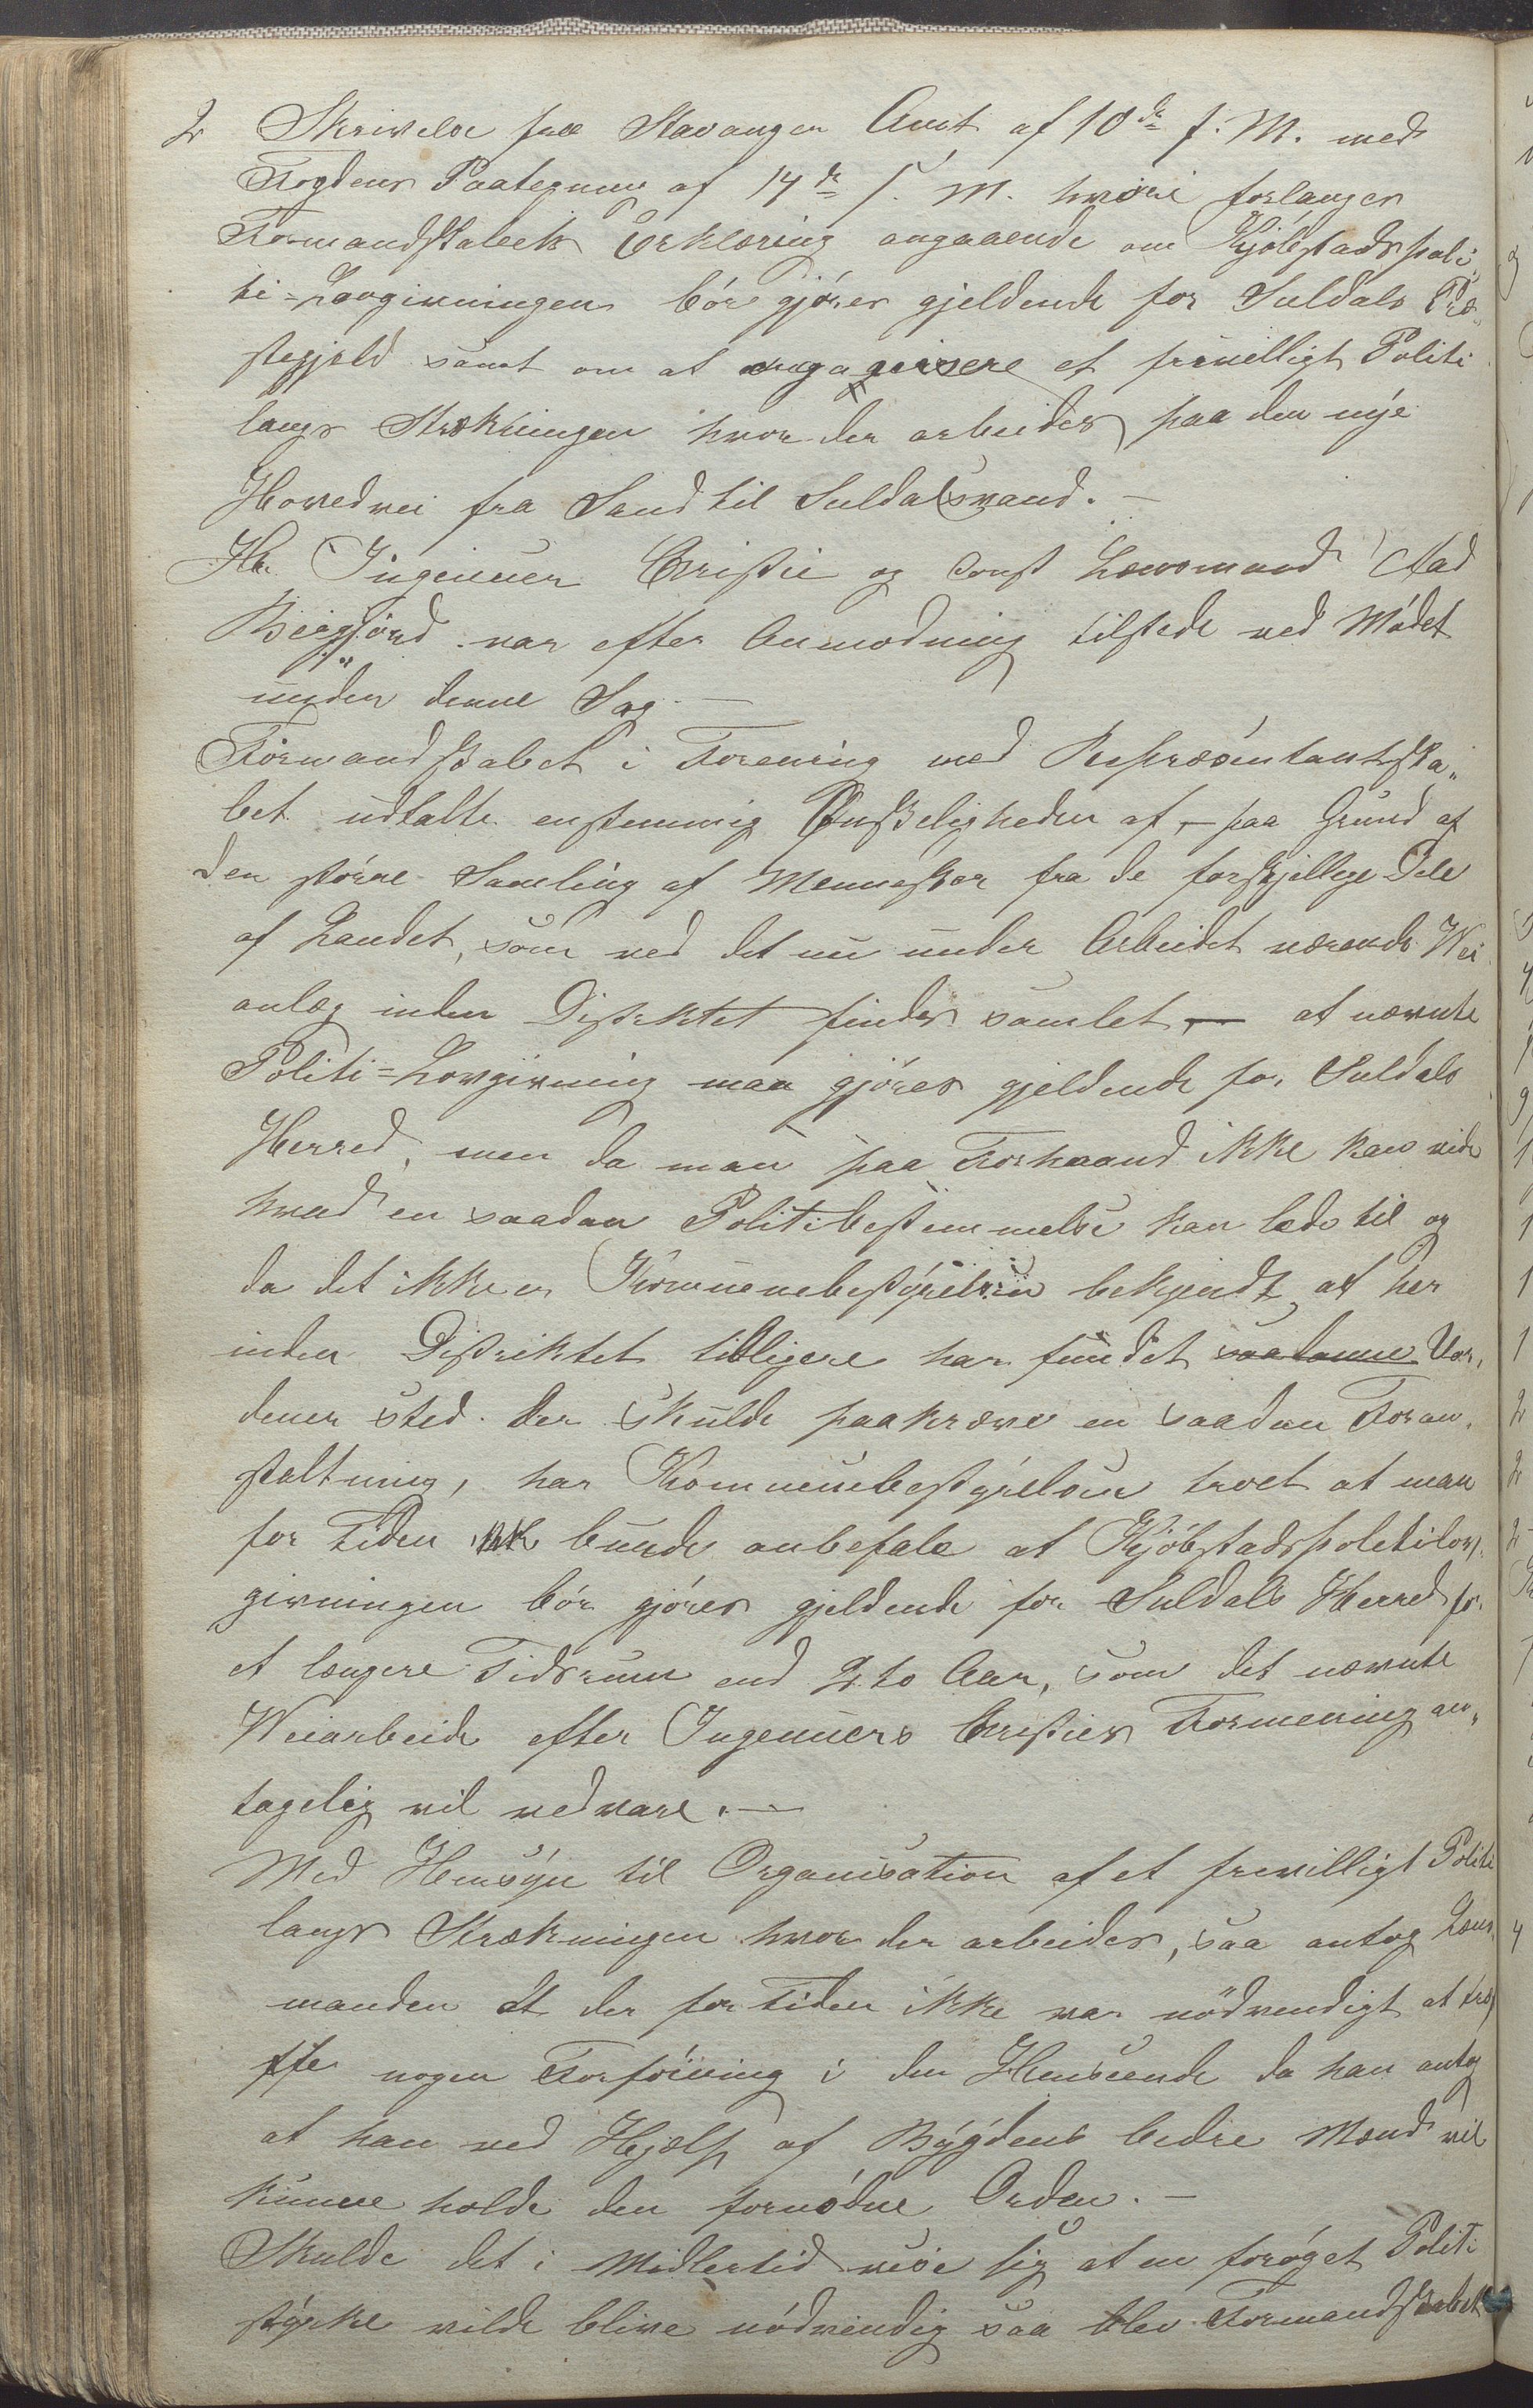 2 Skrivelse fra Stavanger Amt af 10de f. M. med
Fogdens Paategning af 14de s. M. hvori forlanges
Formandskabets Erklæring angaaende om Kjøbstadspoli„
ti=Lovgivningen bør gjøres gjeldende for Suldals Præ„
stegjeld samt om at organisere et frivilligt Politi
langs Strækningen hvor der arbeides paa den nye
Hovedvei fra Sand til Suldalsvand. —
Hr. Ingenieur Christie og const Lænsmand
var efter Anmodning tilstede ved Mødet
under denne Sag. —
Formandskabet i Forening med Repræsentantska„
bet udtalte enstemmig Ønskeligheden af, — paa Grund af
den større Samling af Mennesker fra de forskjellige Dele
af Landet, som ved det nu under Arbeidet værende Vei
anlæg inden Distriktet findes samlet, — at nævnte
Politi=Lovgivning maa gjøres gjeldende for Suldals
Herred, men da man paa Forhaand ikke kan vide
hvad en saadan Politibestemmelse kan lede til og
da det ikke er Kommunebestyrelsen bekjendt, at her
inden Distriktet tidligere har fundet saadanne Uor„
dener sted der skulde paakræve en saadan Foran„
staltning, har Kommunebestyrelsen troet at man
for Tiden ikke burde anbefale at Kjøbstadspolitilov„
givningen bør gjøres gjeldende for Suldals Herred for
et længere Tidsrum end 2 to Aar, som det nævnte
Veiarbeide efter Ingeniuers Christies Formening an„
tagelig vil vedvare. —
Med Hensyn til Organisation af et frivilligt Politi
langs Strækningen hvor der arbeides, saa antog Læns„
manden at der for Tiden ikke var nødvendigt at træ„
ffe nogen Forføining i den Henseende da han antog
at han ved Hjælp af Bygdens bedre Mænd vil
kunne holde den fornødne Orden. —
Skulde det i midlertid vise sig at en forøget Politi
styrke vilde blive nødvendig saa blev Formandskabet